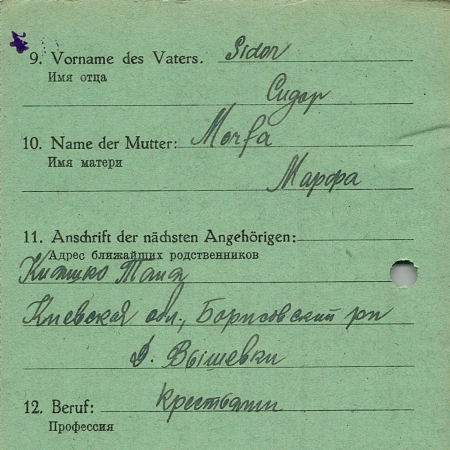 9. Vorname des Vaters. Sidor
Имя отца
Сидор
10. Name der Mutter: Morfa
Имя матери
Марфа
11. Anschrift der nächsten Angehörigen:
Адрес ближайших родственников
Таня
Киевская обл., рн
д. Вышевки
12. Beruf:
Профессия